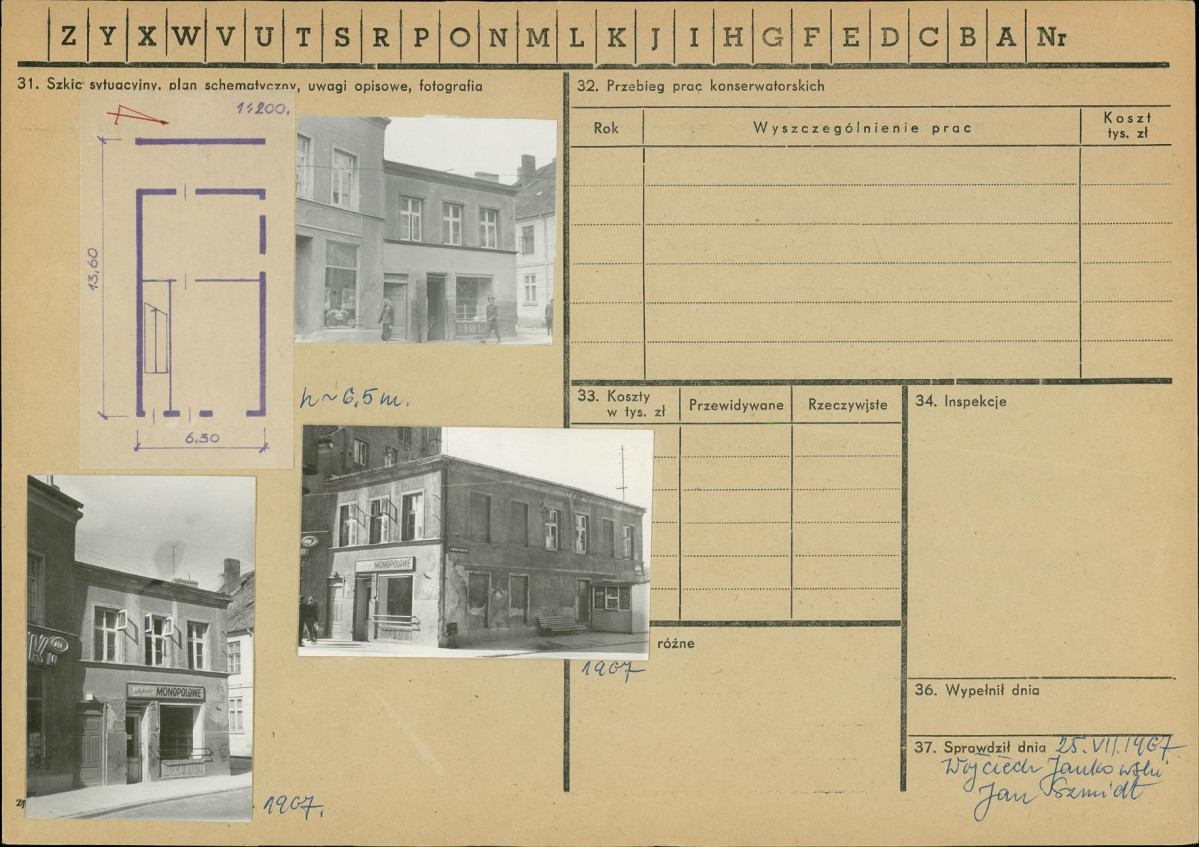 Z Y X W V U T S R P O N M L K J I H G F E D C B A Nr
31. Szkic sytuacyjny, plan schematyczny, uwagi opisowe, fotografia
1:200.
13,60
6.30
h ~ 6,5 m.
MONOPOLOWE
1967
MONOPOLOWE
1967.
32. Przebieg prac konserwatorskich
Rok
Wyszczególnienie prac
Koszt
tys. zł
33. Koszty
w tys. zł
Przewidywane
Rzeczywiste
34. Inspekcje
różne
36. Wypełnił dnia
37. Sprawdził dnia 25.VII.1967
Wojciech Jankowski
Jan Szmidt